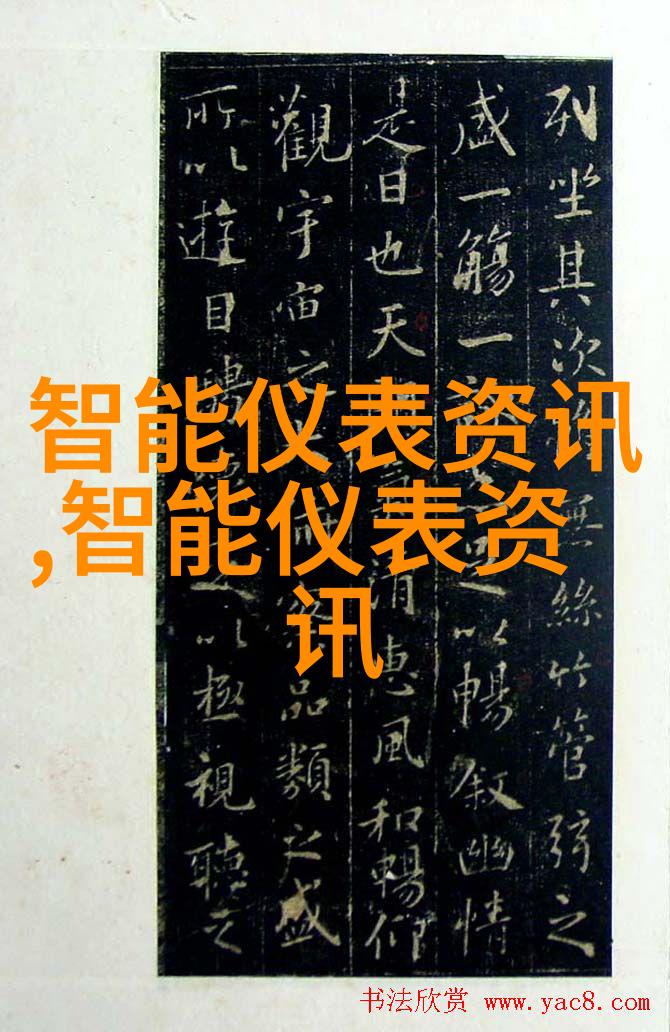 列坐其次無絲竹管弦之
盛一觴一以暢叙幽情
是日也天清惠風和暢仰
觀宇宙之察品類之盛
所以遊目騁以極視聽之
智能仪表资讯
,智能仪表资
讯
书法欣赏 www.yac8.com